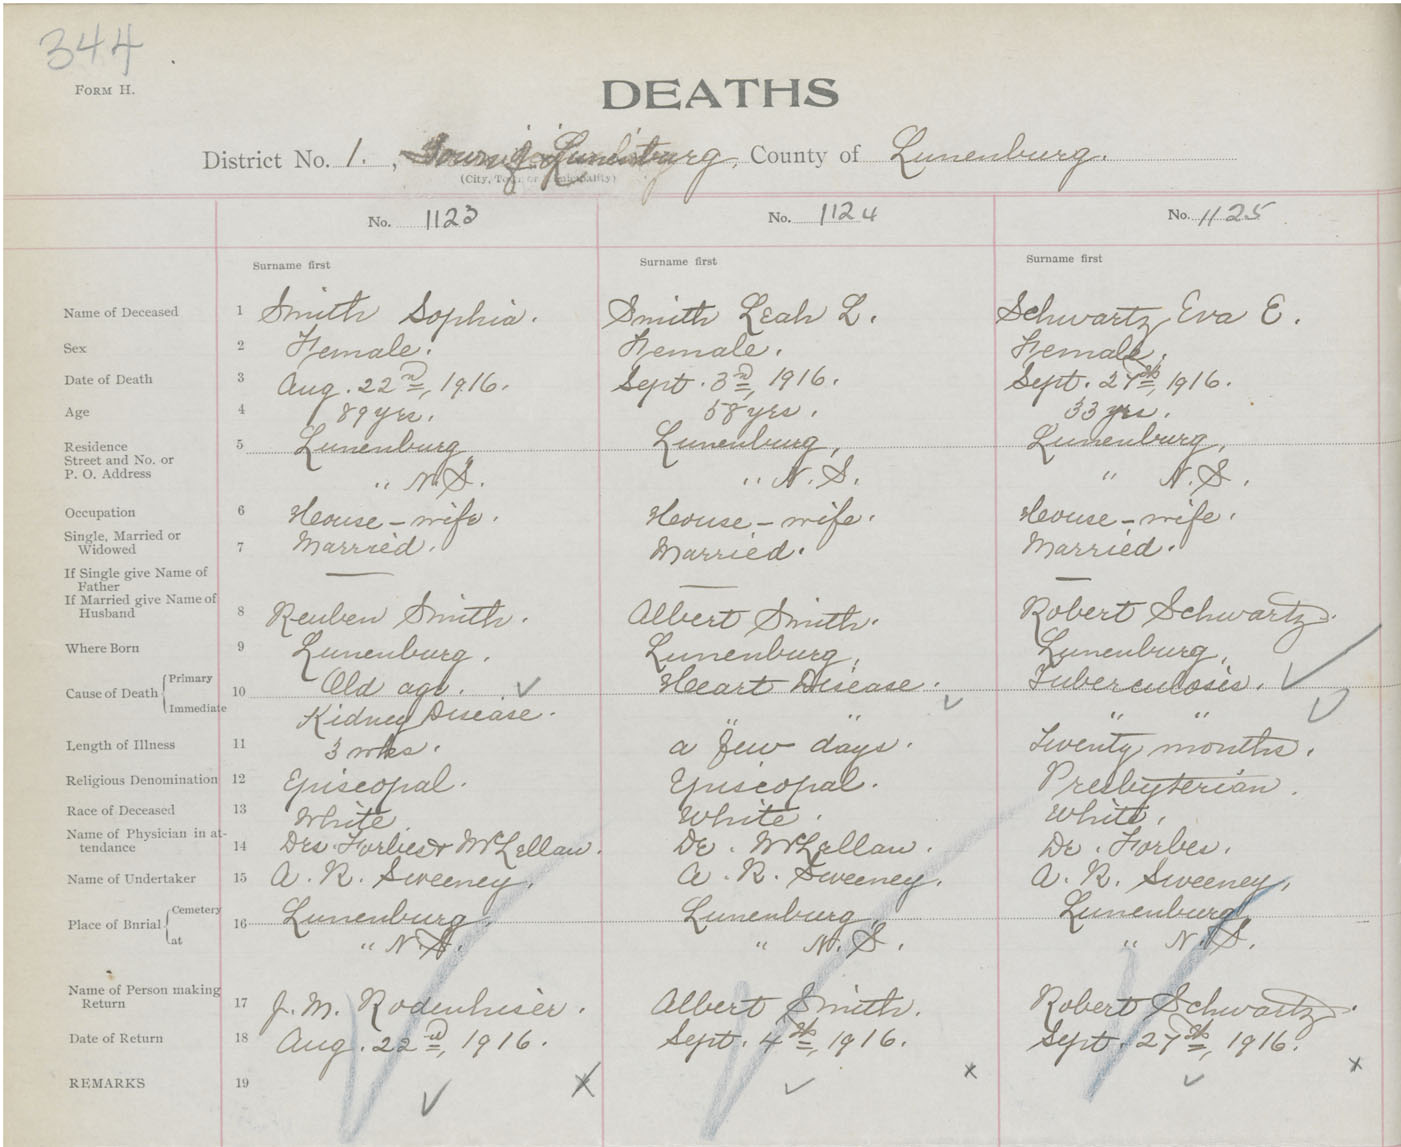 344
FORM H.
DEATHS
District No. 1. , Town of Lunenburg, County of Lunenburg.
(City, Town or Municipality)
No. 1123 No. 1124 No. 1125
Surname first Surname first Surname first
Name of Deceased 1 Smith Sophia. Smith Leah L. Schwartz, Eva E.
Sex 2 Female. Female. Female.
Date of Death 3 Aug. 22nd, 1916. Sept. 3d, 1916. Sept. 27th, 1916.
Age 4 89 yrs. 58 yrs. 33 yrs.
Residence 5 Lunenburg Lunenburg, Lunenburg,
Street and No. or
P. O. Address " N.S. " N.S. " N.S.
Occupation 6 House-wife. House-wife. House-wife.
Single, Married or
Widowed 7 Married. Married. Married.
If Single give Name of
Father — — —
If Married give Name of
Husband 8 Reuben Smith. Albert Smith. Robert Schwartz.
Where Born 9 Lunenburg. Lunenburg, Lunenburg,
Cause of Death { Primary 10 Old age. ✓ Heart Disease. ✓ Tuberculosis. ✓
Immediate Kidney Disease. " " " " ✓
Length of Illness 11 3 wks. a few days. Twenty months.
Religious Denomination 12 Episcopal. Episcopal. Presbyterian.
Race of Deceased 13 White White. White.
Name of Physician in at-
tendance 14 Drs. Forbes & McLellan. Dr. McLellan. Dr. Forbes.
Name of Undertaker 15 A. R. Sweeney. A. R. Sweeney. A. R. Sweeney,
Place of Burial { Cemetery 16 Lunenburg, Lunenburg, Lunenburg,
at " N.S. " N.S. " N.S.
Name of Person making
Return 17 J. M. Rodenhiser. Albert Smith. Robert Schwartz.
Date of Return 18 Aug. 22nd, 1916. Sept. 4th, 1916. Sept. 27th, 1916.
REMARKS 19 ✓ x ✓ x ✓ x